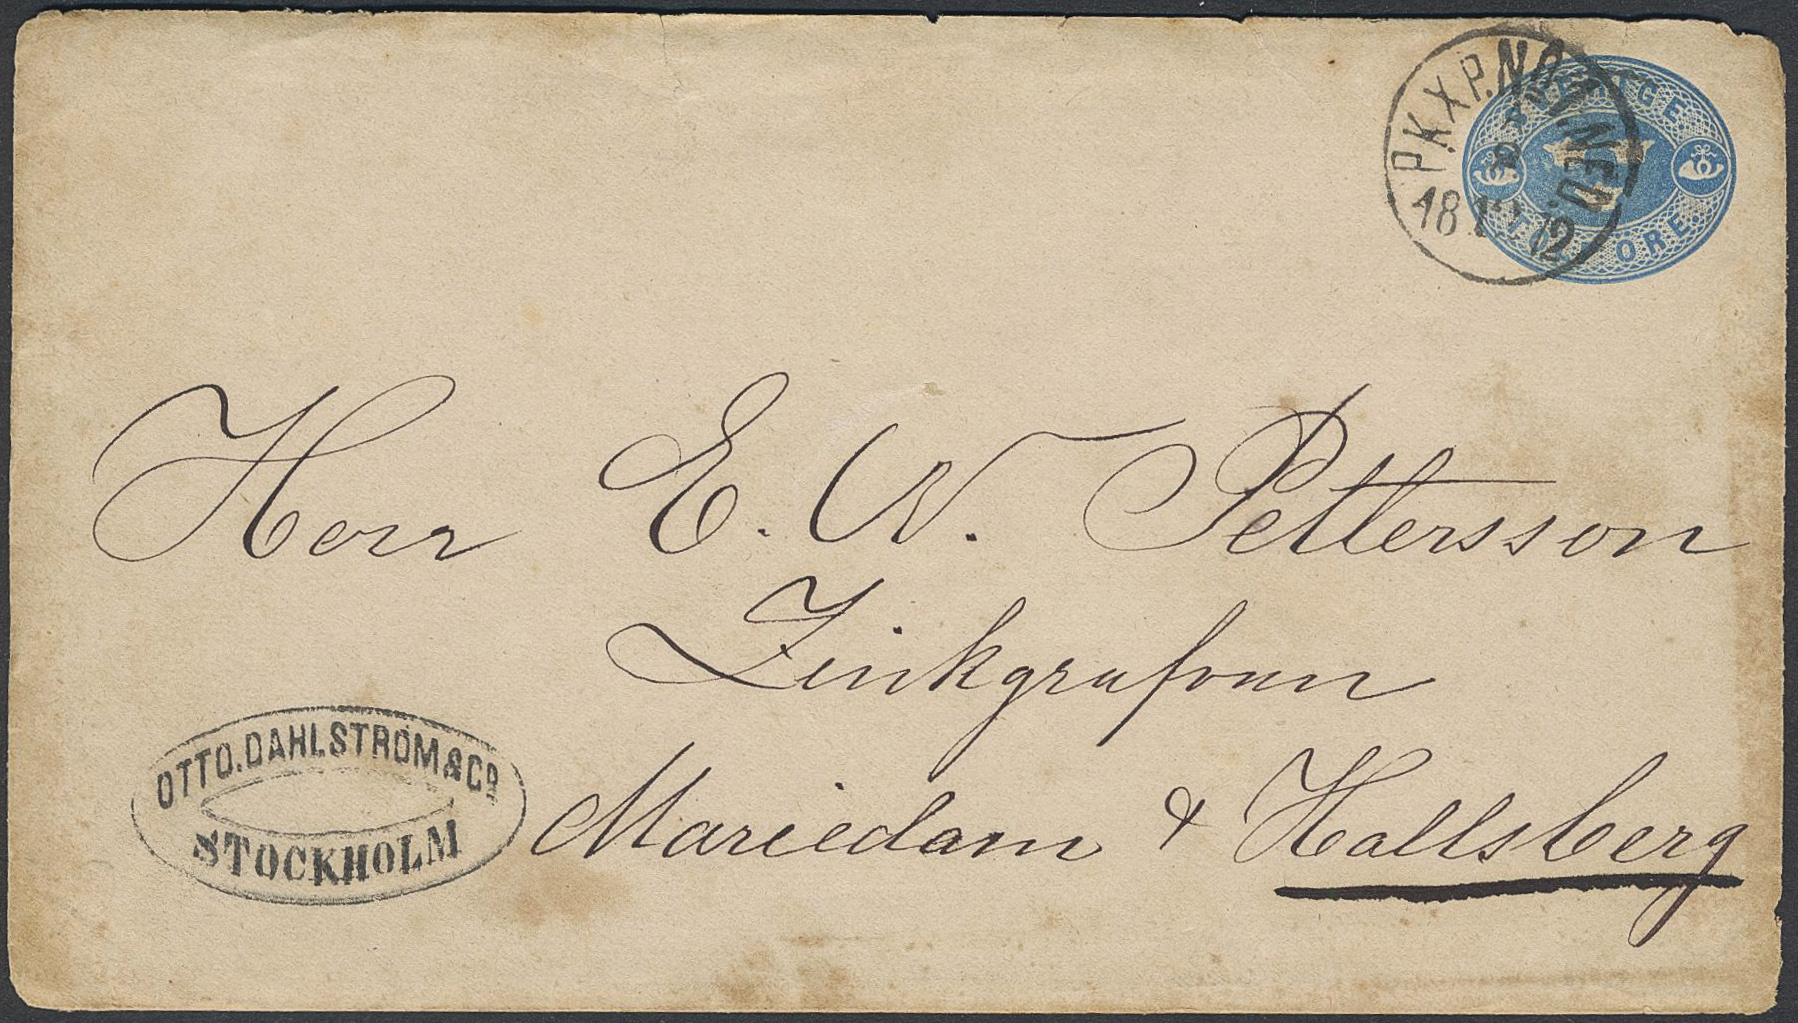 P.K.X.P. No 2. NED.
18 12 72
SVERIGE
ÖRE
Herr E. W. Pettersson
Zinkgrufvan
Mariedam & Hallsberg
OTTO. DAHLSTRÖM & Co
STOCKHOLM